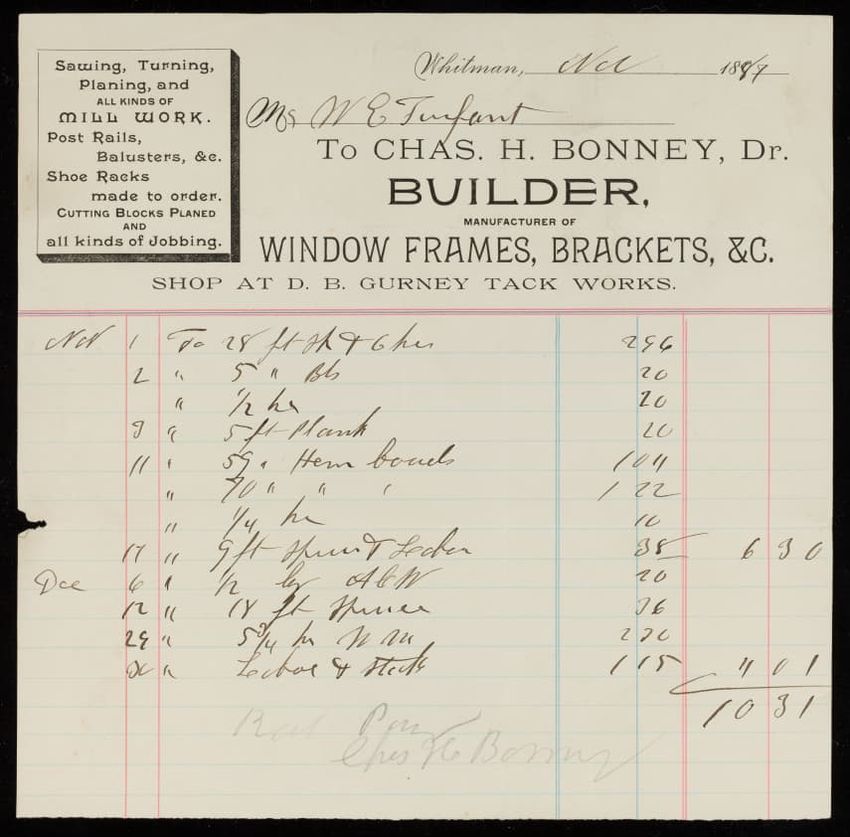 Sawing, Turning,
Planing, and
ALL KINDS OF
MILL WORK.
Post Rails,
Balusters, &c.
Shoe Racks
made to order.
CUTTING BLOCKS PLANED
AND
all kinds of Jobbing.
Whitman, Nov 1889
Mr W E
To CHAS. H. BONNEY, Dr.
BUILDER,
MANUFACTURER OF
WINDOW FRAMES, BRACKETS, &C.
SHOP AT D. B. GURNEY TACK WORKS.
Nov 1 To 28 ft & 6 hrs 2 96
2 " 5 " Bds 20
" 1/2 hr 20
9 " 5 ft Plank 20
11 " 59 " Hem boards 1 04
" 70 " " " 1 22
" 1/4 hr 10
17 " 9 ft Spruce & Labor 38 6 30
Dec 6 " 1/2 20
12 " 18 ft Spruce 36
24 " 5 3/4 hr W M 2 30
" Labor & Stock 1 15 4 01
10 31
Rec Pay
Chas H Bonney